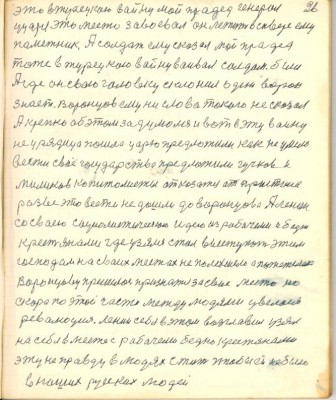 это в турецкою вайну мой прадед генерал 26
у царя это место завоевал он мститов сквере ему
паметник, А солдат ему сказал мой прадед
тоже в турецкою вайну ваивал солдатом был
А где он сваю головку склонил один ворон
знает. Воронцов ему ни слова токого не сказал
А крепко об этом задумолся и вот в эту вайну
не урядица пошла царю предложили как не умело
вести своё государство предложили гучков и
милюков капитолисти отказатца от престола
разве это вести не дошли до воронцова А ленин
со сваею социолистическою идею из рабочими и бедн
крестянами где узялся стал выступать этим
господам на сваих местах не поленилось а пришлось
Воронцову пришлось признать за свае место но
скоро по этой часто между людями и великой
революция. ленин себя в этом возглавил узял
на себя вместе с рабочеми бедно крестянами
эту не правду в людях стоит чтобы её не было
в нащих руских людей